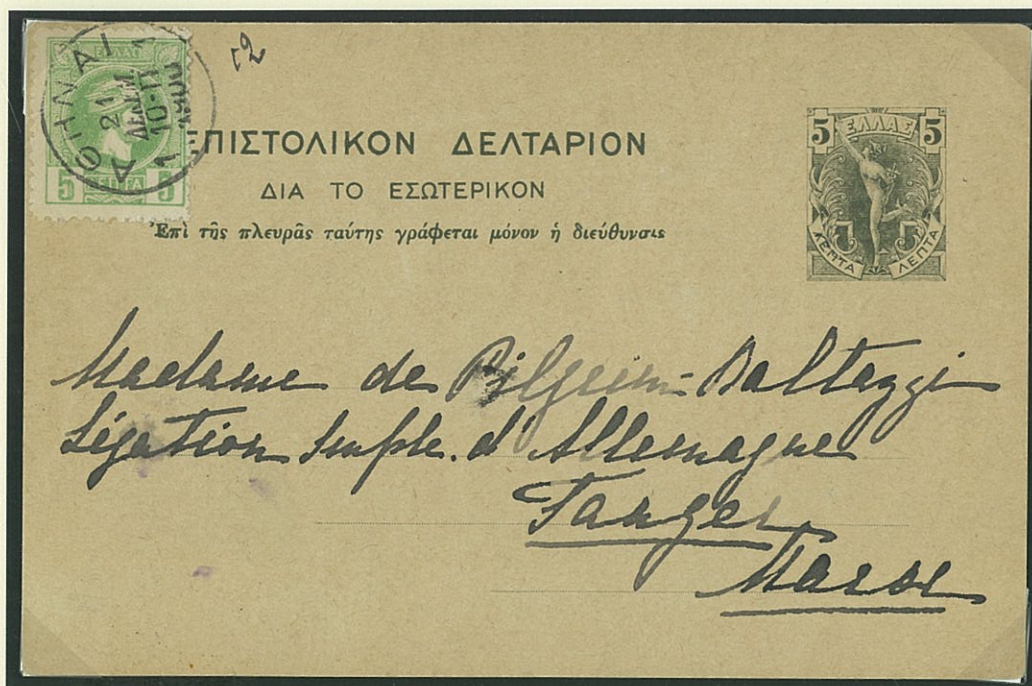 ΕΛΛΑΣ
5 ΛΕΠΤΑ 5
ΑΘΗΝΑΙ 1
21
ΔΕΚΕΜ.
10-11
1900
1
52
ΕΠΙΣΤΟΛΙΚΟΝ ΔΕΛΤΑΡΙΟΝ
ΔΙΑ ΤΟ ΕΣΩΤΕΡΙΚΟΝ
Ἐπὶ τῆς πλευρᾶς ταύτης γράφεται μόνον ἡ διεύθυνσις
5 ΕΛΛΑΣ 5
5
ΛΕΠΤΑ ΛΕΠΤΑ
Madame de Pilgrim-Baltazzi
Légation Imple. d'Allemagne
Tanger
Maroc